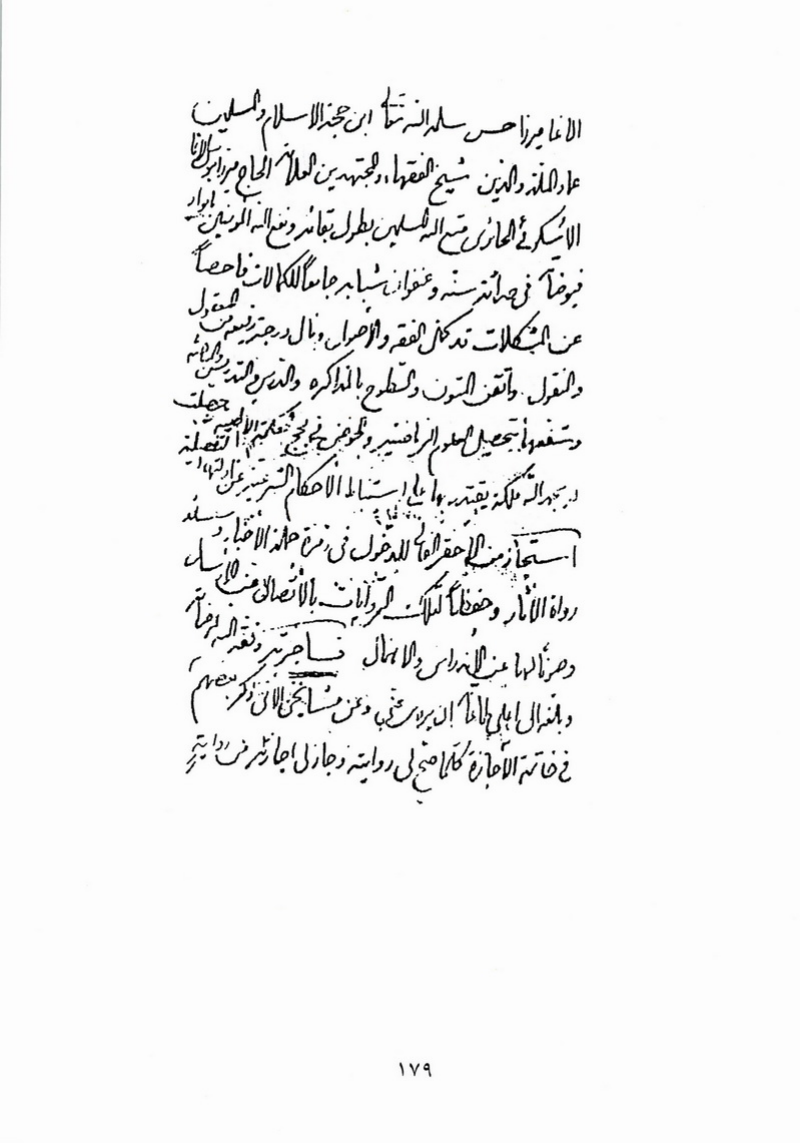 الاغا ميرزا حسن سلمه الله تعالى ابن حجة الاسلام والمسلمين
عماد الملة والدين شيخ الفقهاء والمجتهدين العلامة الحاج ميرزا موسى الاغا
الاسكوئي الحائري متع الله المسلمين بطول بقائه ونفع الله المؤمنين بانوار
فيوضاته في حداثة سنه وعنفوان شبابه جامعاً للكمالات فاحصاً
عن المشكلات قد كمل الفقه والاصول ونال درجة رفيعة من المعقول
والمنقول واتقن المتون والسطوح بالمذاكرة والدرس والتدريس
وشفعها بتحصيل العلوم الرياضية والخوض في لجج حصلت
له بحمد الله ملكة يقتدر بها على استنباط الأحكام الشرعية عن ادلتها التفصيلية
استجاز من الأحقر الفاني للدخول في زمرة حملة الأخبار و
رواة الآثار وحفظاً لتلك الروايات بالأتصال عن الارسال
وصونا لها عن الاندراس والاهمال فاجزته وفقه الله لمرضاته
وبلغه الى اعلى ان يروي عني وعن مشايخي الآتي ذكر بعضهم
في خاتمة الأجازة كلما صح لي روايته وجاز لي اجازته من روايته
١٧٩